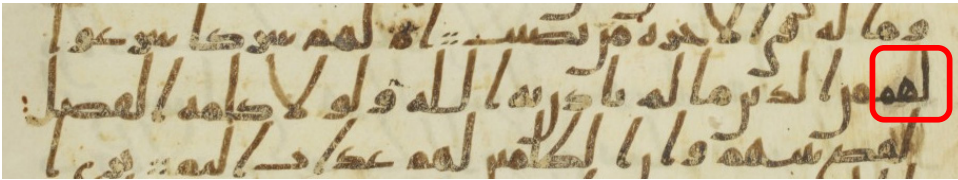 وما له في الاخرة من نصيب ام لهم شركا شرعوا
لهم من الدين ما لم ياذن به الله ولولا كلمة الفصل
لقضي بينهم وان الظلمين لهم عذاب اليم ترى ا